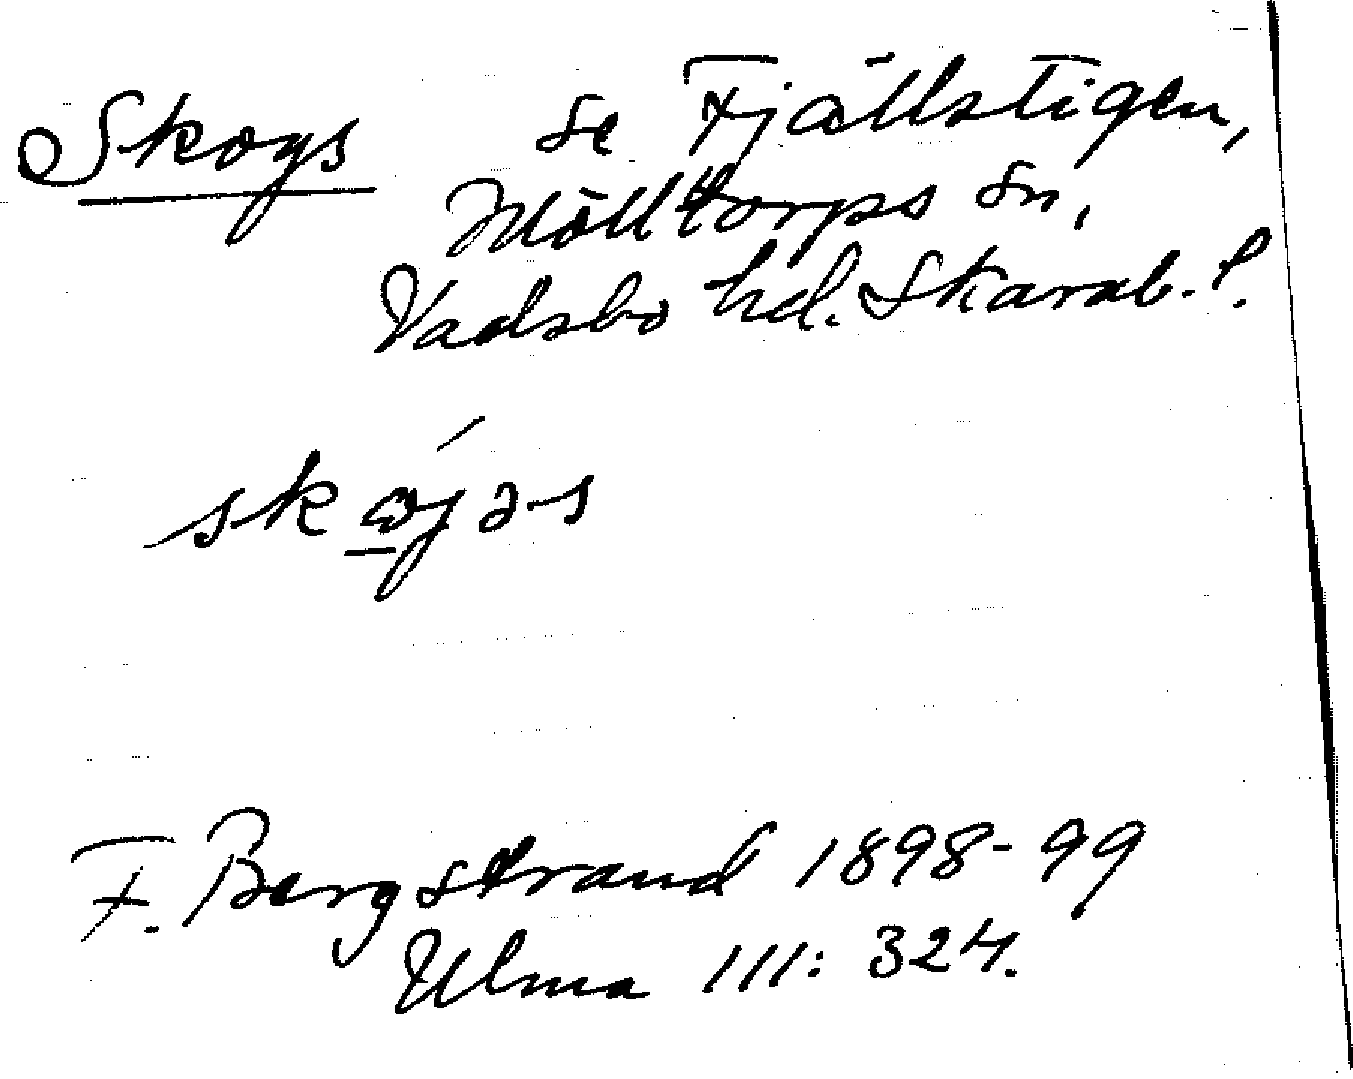 Skogs se Fjällstigen,
Mölltorps sn,
Vadsbo hd. Skarab. l.
F. Bergstrand 1898-99
Ulma 111: 324.